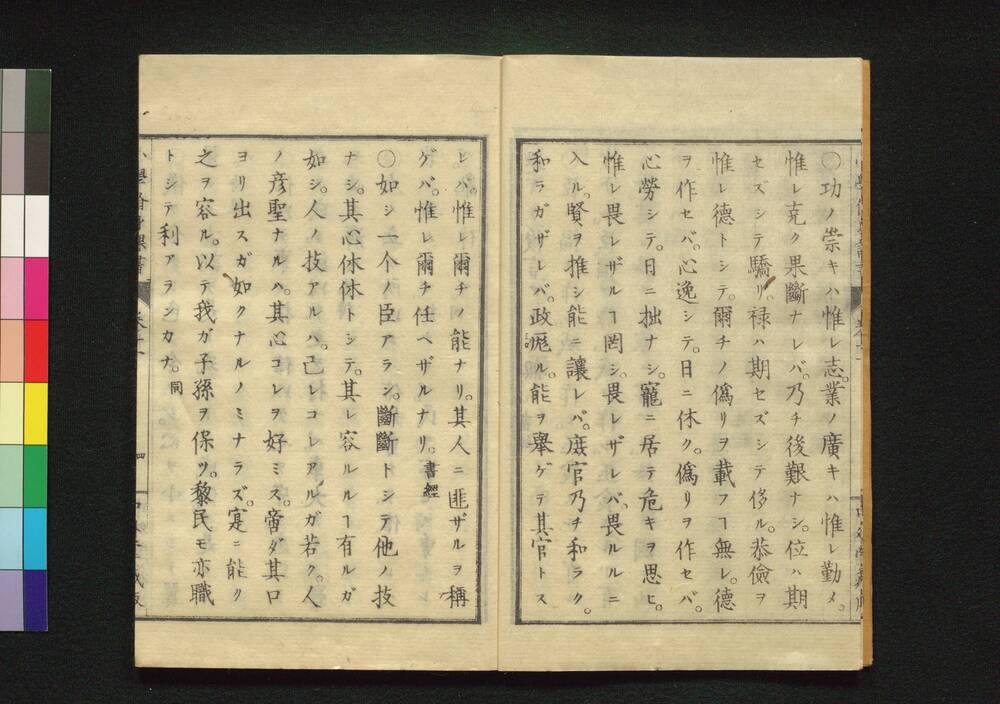 〇功ノ崇キハ惟レ志。業ノ廣キハ惟レ勤メ。
惟レ克ク果斷ナレバ。乃チ後艱ナシ。位ハ期
セズシテ驕リ。祿ハ期セズシテ侈ル。恭儉ヲ
惟レ德トシテ。爾チノ僞リヲ載フヿ無レ。德
ヲ作セバ。心逸シテ。日ニ休ク。僞リヲ作セバ。
心勞シテ。日ニ拙ナシ。寵ニ居テ危キヲ思ヒ。
惟レ畏レザルヿ罔シ。畏レザレバ。畏ルルニ
入ル。賢ヲ推シ能ニ讓レバ。庶官乃チ和ラク。
和ラガザレバ。政厖ル。能ヲ舉ゲテ其官トス
レバ。惟レ爾チノ能ナリ。其人ニ匪ザルヲ稱
ゲバ。惟レ爾チ任ヘザルナリ。書經
〇如シ一个ノ臣アラン。斷斷トシテ他ノ技
ナシ。其心休休トシテ。其レ容ルルヿ有ルガ
如シ。人ノ技アルハ。己レコレアルガ若ク。人
ノ彥聖ナルハ。其心コレヲ好ミス。啻ダ其口
ヨリ出スガ如クナルノミナラズ。寔ニ能ク
之ヲ容ル。以テ我ガ子孫ヲ保ツ。黎民モ亦職
トシテ利アランカナ。同
四